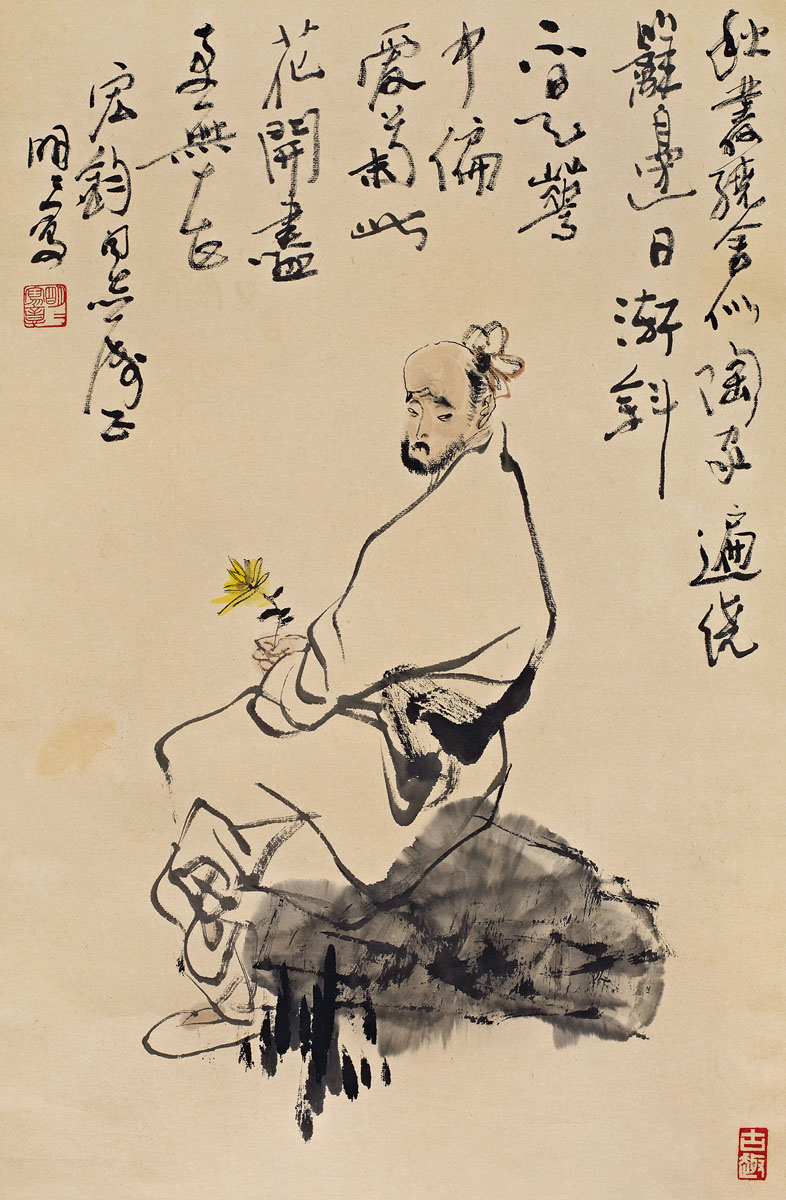 秋叢繞舍似陶家遍绕
籬邊日漸斜
不是
中偏
愛菊此
花開盡
更無花
宏鈞同志正
明明写
古趣